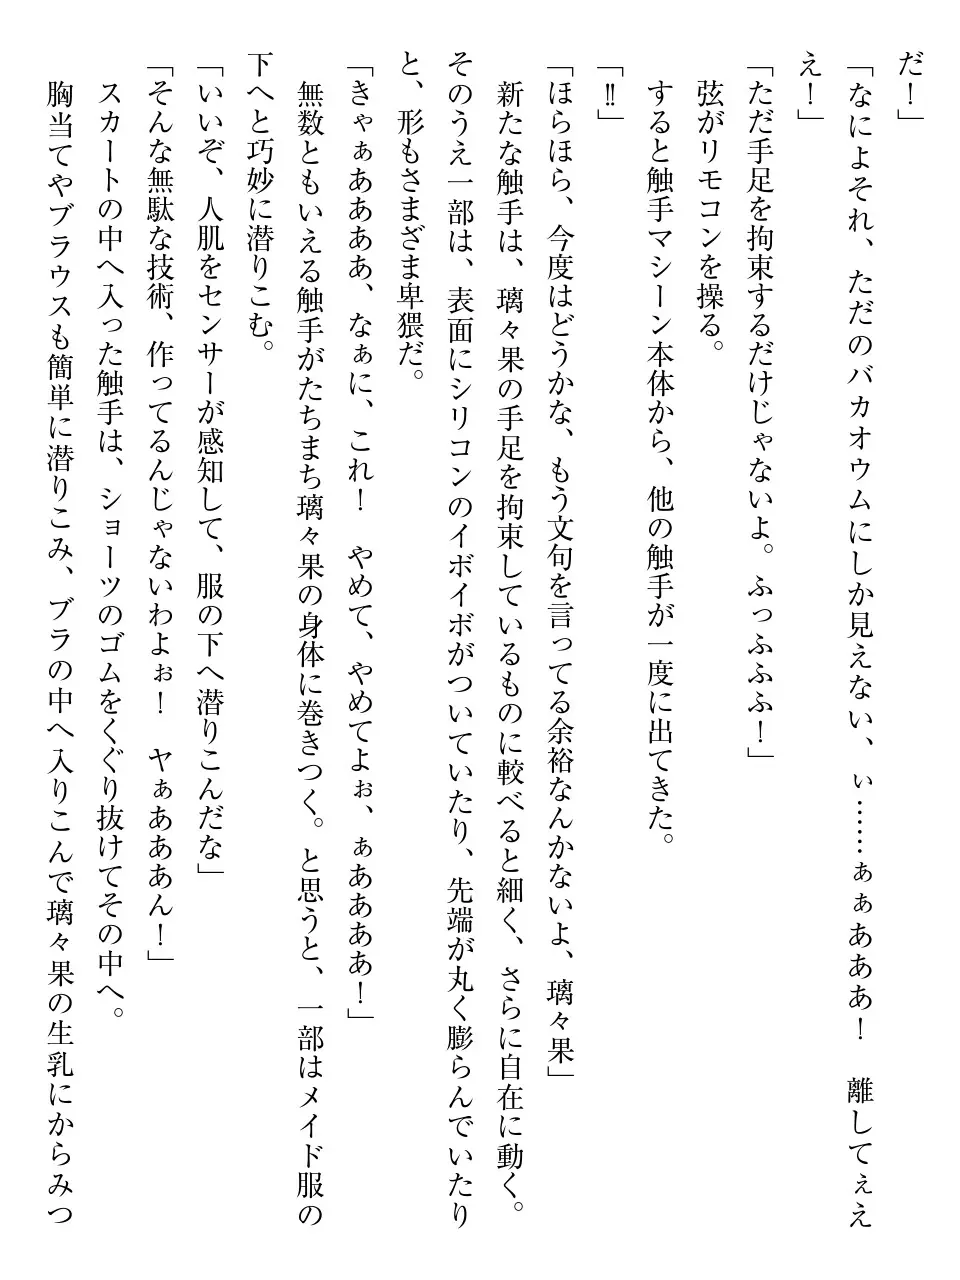 だ！」
「なによそれ、ただのバカオウムにしか見えない、ぃ……ぁぁあああ！　離してぇえ
え！」
「ただ手足を拘束するだけじゃないよ。ふっふふふ！」
　弦がリモコンを操る。
　すると触手マシーン本体から、他の触手が一度に出てきた。
「‼」
「ほらほら、今度はどうかな、もう文句を言ってる余裕なんかないよ、璃々果」
　新たな触手は、璃々果の手足を拘束しているものに較べると細く、さらに自在に動く。
そのうえ一部は、表面にシリコンのイボイボがついていたり、先端が丸く膨らんでいたり
と、形もさまざま卑猥だ。
「きゃぁああああ、なぁに、これ！　やめて、やめてよぉ、ぁああああ！」
　無数ともいえる触手がたちまち璃々果の身体に巻きつく。と思うと、一部はメイド服の
下へと巧妙に潜りこむ。
「いいぞ、人肌をセンサーが感知して、服の下へ潜りこんだな」
「そんな無駄な技術、作ってるんじゃないわよぉ！　ヤぁあああん！」
　スカートの中へ入った触手は、ショーツのゴムをくぐり抜けてその中へ。
　胸当てやブラウスも簡単に潜りこみ、ブラの中へ入りこんで璃々果の生乳にからみつ